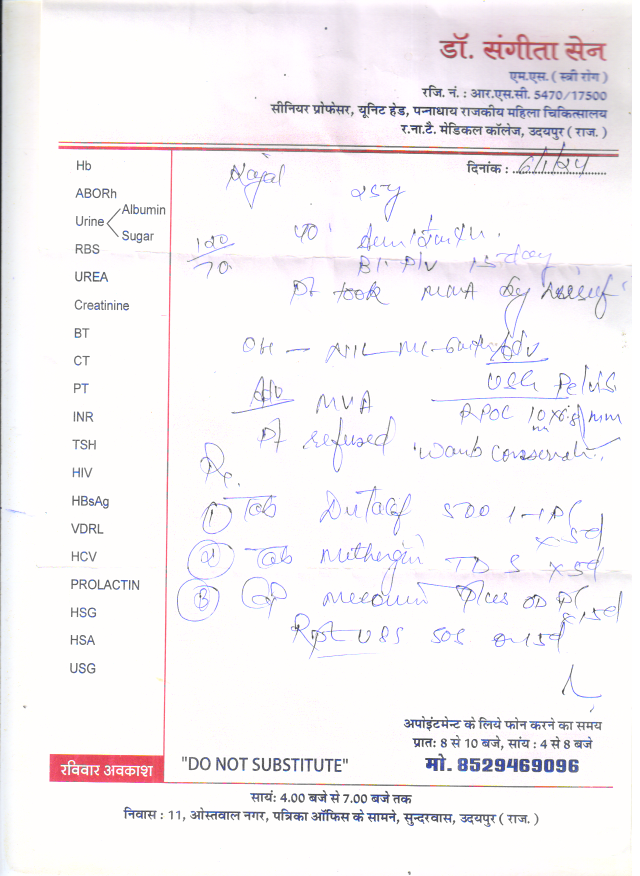 डॉ. संगीता सेन
एम.एस. ( स्त्री रोग )
रजि. नं. : आर.एस.सी. 5470/17500
सीनियर प्रोफेसर, यूनिट हेड, पन्नाधाय राजकीय महिला चिकित्सालय
र.ना.टै. मेडिकल कॉलेज, उदयपुर ( राज. )
दिनांक : 6/1/24
Hb
ABORh
Urine Albumin
Sugar
RBS
UREA
Creatinine
BT
CT
PT
INR
TSH
HIV
HBsAg
VDRL
HCV
PROLACTIN
HSG
HSA
USG
25y
120/70
Pt took by
Adv
Adv MVA
USG Pelvis
RPOC mm
Pt refused wants
Rx.
① Tab 500 1-1 PC x 5d
② Tab Methergin TDS x 5d
③ Cap OD PC x 15d
Rpt USG SOS
अपोइंटमेन्ट के लिये फोन करने का समय
प्रात: 8 से 10 बजे, सांय : 4 से 8 बजे
रविवार अवकाश
"DO NOT SUBSTITUTE"
मो. 8529469096
सायं: 4.00 बजे से 7.00 बजे तक
निवास : 11, ओस्तवाल नगर, पत्रिका ऑफिस के सामने, सुन्दरवास, उदयपुर ( राज. )